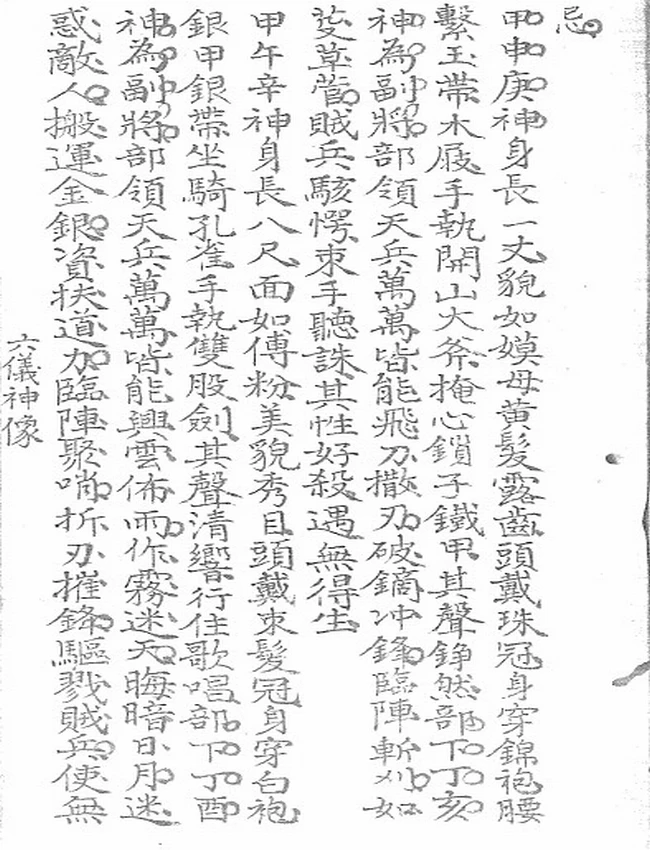 忌
甲申庚神身長一丈貌如嫫母黃髮露齒頭戴珠冠身穿錦袍腰
繫玉帶木屐手執開山大斧掩心鎖子鐵甲其聲錚然部下丁亥
神為副將部領天兵萬萬皆能飛刀撒刃破鏑冲鋒臨陣斬刈如
芟草菅賊兵駭愕束手聽誅其性好殺遇無得生
甲午辛神身長八尺面如傅粉美貌秀目頭戴束髮冠身穿白袍
銀甲銀帶坐騎孔雀手執雙股劍其聲清響行住歌唱部下丁酉
神為副將部領天兵萬萬皆能興雲佈雨作霧迷天晦暗日月迷
惑敵人搬運金銀資扶道力臨陣聚哨折刃摧鋒驅戮賊兵使無
六儀神像